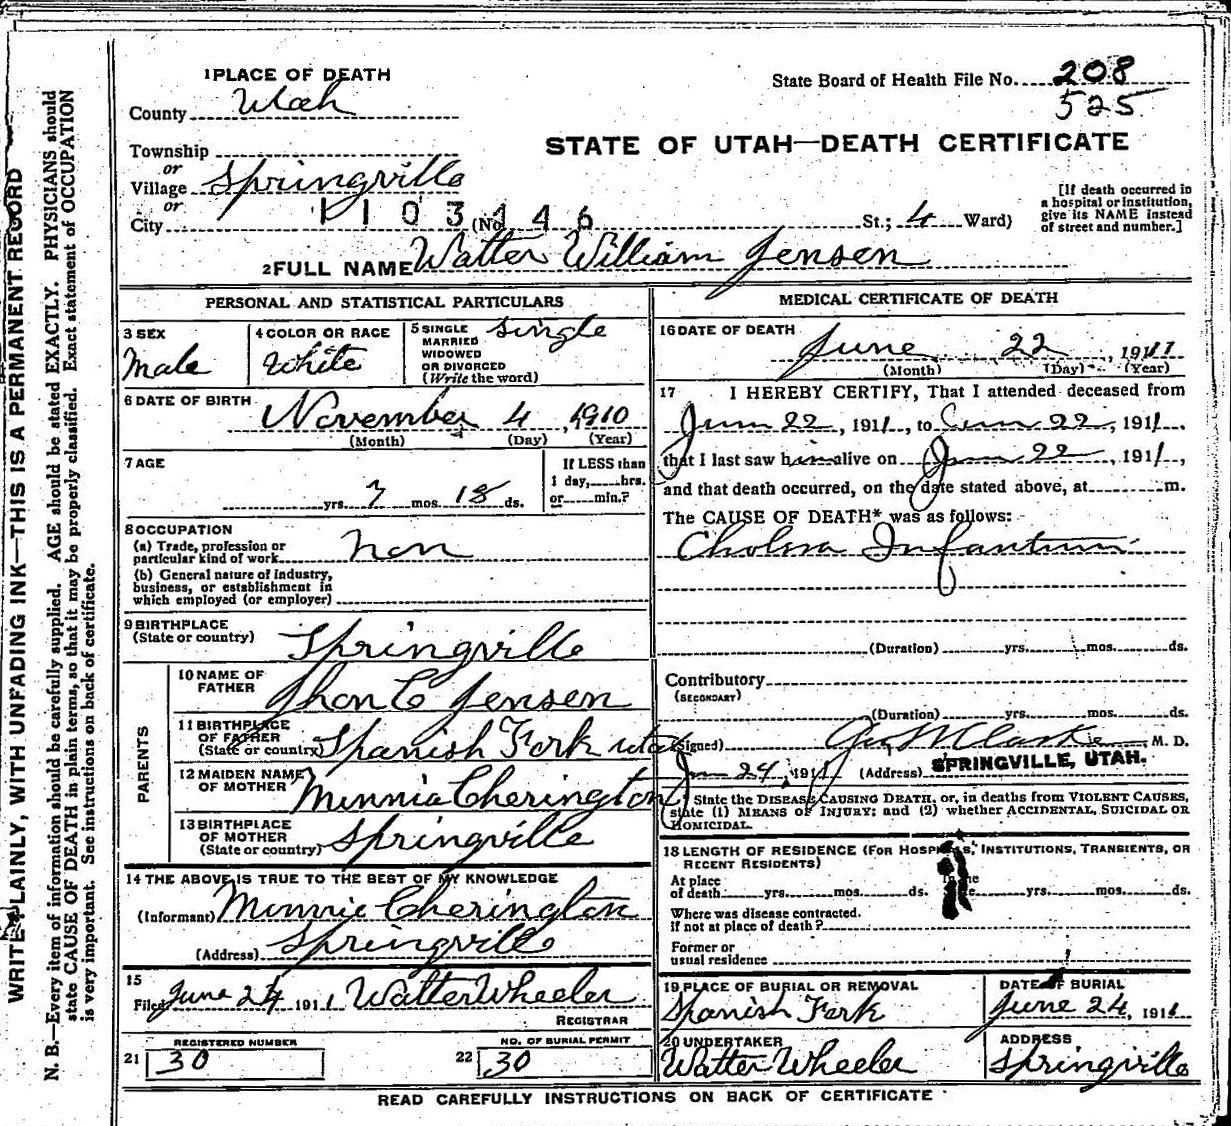 1 PLACE OF DEATH
State Board of Health File No. 208
525
County Utah
STATE OF UTAH—DEATH CERTIFICATE
Township
or
Village Springville
or
City (No. St.; 4 Ward)
1103146
[If death occurred in
a hospital or institution,
give its NAME instead
of street and number.]
2 FULL NAME Walter William Jensen
PERSONAL AND STATISTICAL PARTICULARS
3 SEX
Male
4 COLOR OR RACE
White
5 SINGLE
MARRIED
WIDOWED
OR DIVORCED
(Write the word)
single
6 DATE OF BIRTH
November 4, 1910
(Month) (Day) (Year)
7 AGE
yrs. 7 mos. 18 ds.
If LESS than
1 day, hrs.
or min.?
8 OCCUPATION
(a) Trade, profession or
particular kind of work non
(b) General nature of industry,
business, or establishment in
which employed (or employer)
9 BIRTHPLACE
(State or country) Springville
PARENTS
10 NAME OF
FATHER Jhon C Jensen
11 BIRTHPLACE
OF FATHER
(State or country) Spanish Fork utah
12 MAIDEN NAME
OF MOTHER Minnia Cherington
13 BIRTHPLACE
OF MOTHER
(State or country) Springville
14 THE ABOVE IS TRUE TO THE BEST OF MY KNOWLEDGE
(Informant) Minnie Cherington
(Address) Springville
15
Filed June 24 1911 Walter Wheeler
REGISTRAR
REGISTERED NUMBER
21 30
NO. OF BURIAL PERMIT
22 30
MEDICAL CERTIFICATE OF DEATH
16 DATE OF DEATH
June 22, 1911
(Month) (Day) (Year)
17 I HEREBY CERTIFY, That I attended deceased from
June 22, 1911, to June 22, 1911.
that I last saw him alive on June 22, 1911,
and that death occurred, on the date stated above, at m.
The CAUSE OF DEATH* was as follows:
Cholera Infantum
(Duration) yrs. mos. ds.
Contributory
(SECONDARY)
(Duration) yrs. mos. ds.
(Signed) M. D.
June 24, 1911 (Address) SPRINGVILLE, UTAH.
State the DISEASE CAUSING DEATH, or, in deaths from VIOLENT CAUSES,
state (1) MEANS OF INJURY; and (2) whether ACCIDENTAL, SUICIDAL OR
HOMICIDAL.
18 LENGTH OF RESIDENCE (FOR HOSPITALS, INSTITUTIONS, TRANSIENTS, OR
RECENT RESIDENTS)
At place In the
of death yrs. mos. ds. yrs. mos. ds.
Where was disease contracted.
If not at place of death?
Former or
usual residence
19 PLACE OF BURIAL OR REMOVAL
Spanish Fork
DATE OF BURIAL
June 24, 1911
20 UNDERTAKER
Walter Wheeler
ADDRESS
Springville
READ CAREFULLY INSTRUCTIONS ON BACK OF CERTIFICATE
WRITE PLAINLY, WITH UNFADING INK—THIS IS A PERMANENT RECORD
N. B.—Every item of information should be carefully supplied. AGE should be stated EXACTLY. PHYSICIANS should
state CAUSE OF DEATH in plain terms, so that it may be properly classified. Exact statement of OCCUPATION
is very important. See instructions on back of certificate.